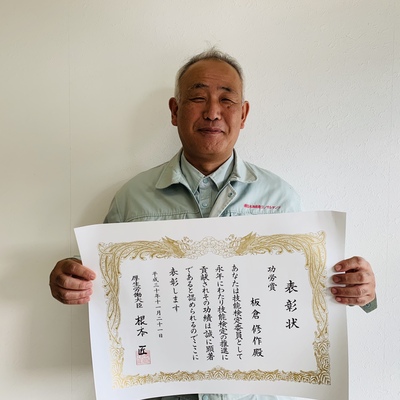 表彰状
功労賞
板倉修作殿
あなたは技能検定委員として
永年にわたり技能検定の推進に
貢献されその功績は誠に顕著
であると認められるのでここに
表彰します
平成三十年十一月二十一日
厚生労働大臣 根本匠